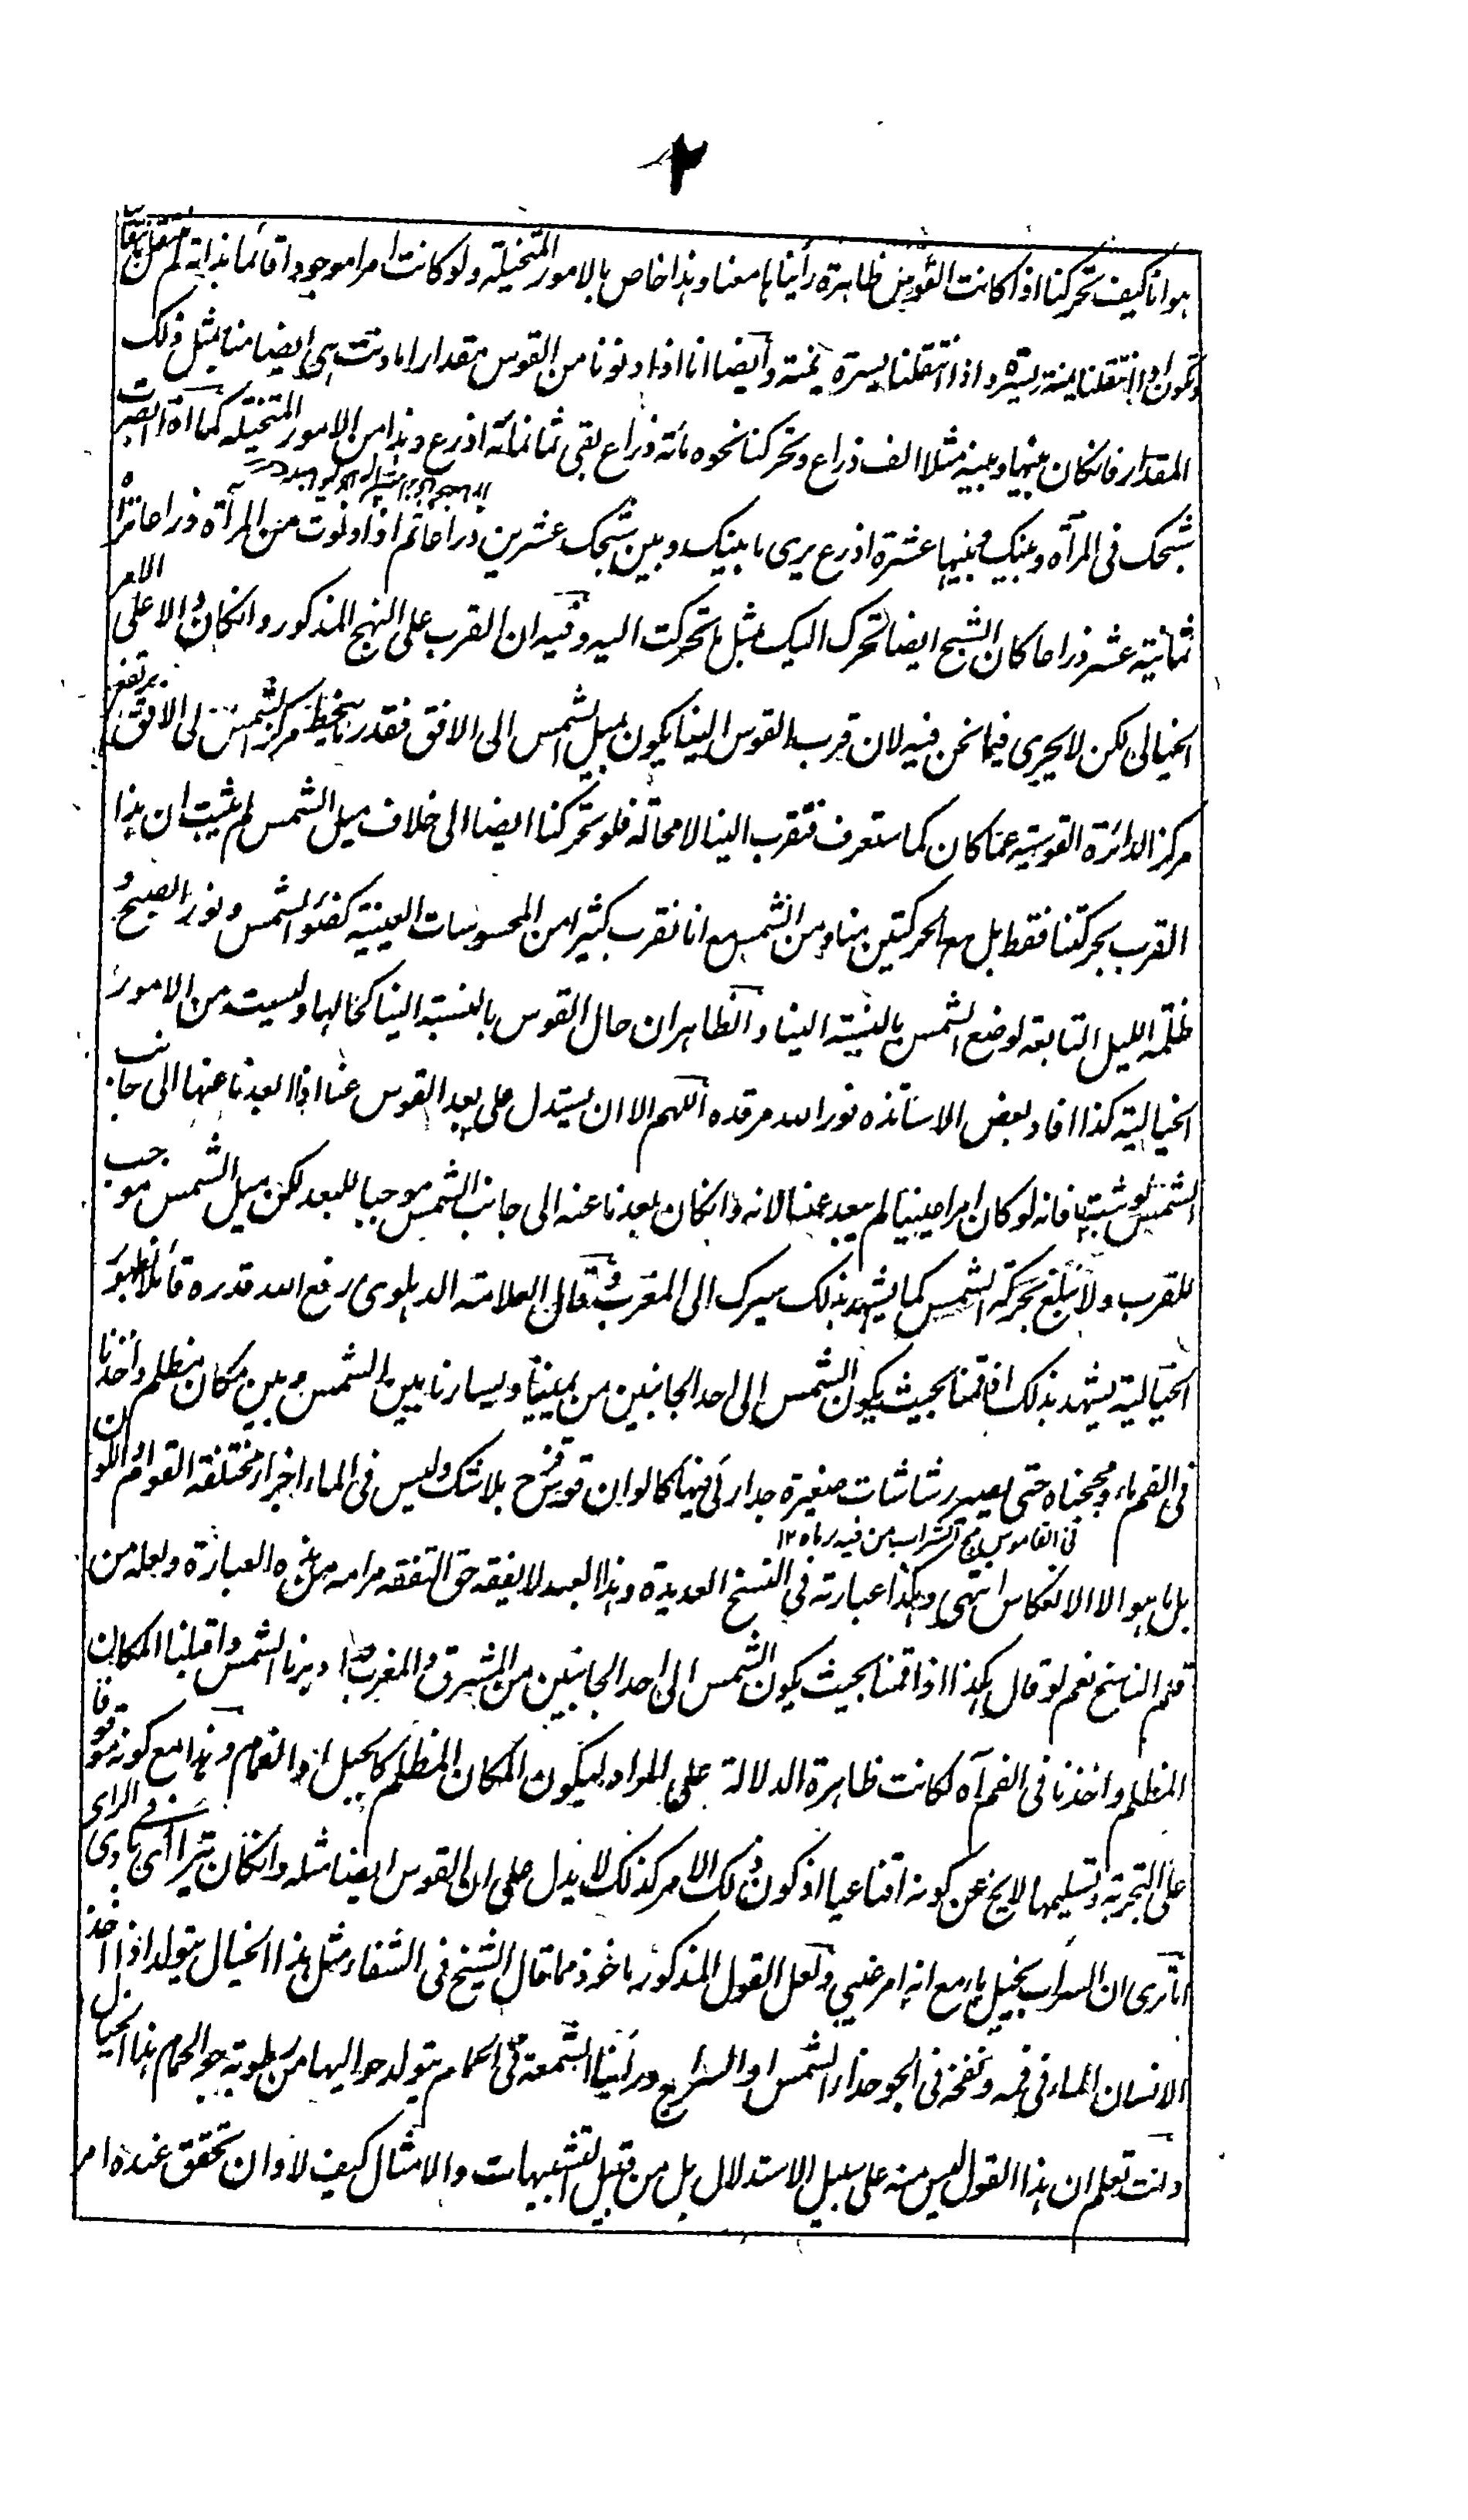 هو انا كيف تحركنا اذا كانت القوس ظاهرة رأيناها معنا وهذا خاص بالامور المتخيلة ولو كانت امرا موجودا قائما بذاته لم تنتقل بانتقا
وتكون اذا انتقلنا يمنة يسرة و اذا انتقلنا يسرة يمنة وايضا انا اذا دنونا من القوس مقدارا ما دنت هى ايضا منا بمثل ذلك
المقدار فانكان بينها وبينه مثلا الف ذراع وتحركنا نحوه مائة ذراع بقى ثمانمائة اذرع وهذا من الامور المتخيلة كما اذا ابصرت
شبحك فى المرآة وبينك وبينها عشرة اذرع يرى ما بينك وبين شبحك عشرين ذراعا ثم اذا دنوت من المرآة ذراعا تراه
ثمانية عشر ذراعا كان الشبح ايضا تحرك اليك مثل ما تحركت اليه وفيه ان القرب على النهج المذكور وانكان الا على الامر
الخيالى لكن لا يجرى فيما نحن فيه لان قرب القوس الينا يكون بميل الشمس الى الافق فبقدر ما ينحط مركز الشمس الى الافق يرتفع
مركز الدائرة القوسية عما كان كما ستعرف فتقرب الينا لا محالة فلو تحركنا ايضا الى خلاف ميل الشمس لم يثبت ان هذا
القرب بحركتنا فقط بل مع الحركتين منا ومن الشمس مع انا نقرب كثيرا من المحسوسات العينية كضوء الشمس ونور الصبح و
ظلمة الليل التابعة لوضع الشمس بالنسبة الينا والظاهر ان حال القوس بالنسبة الينا كحالها وليست من الامور
الخيالية كذا افاد بعض الاساتذه نور الله مرقده اللهم الا ان يستدل على بعد القوس عنا اذا ابعدنا عنها الى جانب
الشمس فانه لو كان امرا عينيا لم يبعد عنا لانه وانكان بعدنا عنه الى جانب الشمس موجبا للبعد لكن ميل الشمس موجب
للقرب ولا نبلغ بحركة الشمس كما يشهد بذلك سيرك الى المغرب وقال العلامة الدهلوى رفع الله قدره قائلا
الخيالية يشهد بذلك اقمنا بحيث يكون الشمس الى احد الجانبين من يميننا ويسارنا بين الشمس وبين مكان مظلم واخذنا
فى الفم ماء ومججناه حتى يصير رشاشات صغيرة جدا رئى فيها كالوان قوس قزح بلا شك وليس فى الماء اجزاء مختلفة القوام واللون
فى القاموس مج الشراب من فيه رماه ١٢
بل ما هو الا الانعكاس انتهى وهكذا عبارته فى النسخ العديدة وهذا العبد لا يفقه حق التفقه مرامه من هذه العبارة ولعله من
قلم الناسخ نعم لو قال هكذا اذا قمنا بحيث يكون الشمس الى احد الجانبين من المشرق والمغرب وادبرنا الشمس واقبلنا المكان
المظلم واخذنا فى الفم آه لكانت ظاهرة الدلالة على المراد ليكون المكان المظلم كالجبل او الغمام وهذا مع كونه موقوفا
على التجربة وتسليمها لا يخ عن كونه اقناعيا اذ كون ذلك الامر كذلك لا يدل على ان القوس ايضا مثله وانكان يتراأى فى بادى الراى
اما ترى ان السراب يخيل ماء مع انه امر عينى ولعل القول المذكور ماخوذ مما قال الشيخ فى الشفاء مثل هذا الخيال يتولد اذا اخذ
الانسان الماء فى فمه ونفخه فى الجو حذاء الشمس او السراج ورأينا الشمعة فى الحمام يتولد حواليها من رطوبة جو الحمام هذا الخيال
وانت تعلم ان هذا القول ليس منه على سبيل الاستدلال بل من قبيل التشبيهات والامثال كيف لا وان تحقق عنده امر